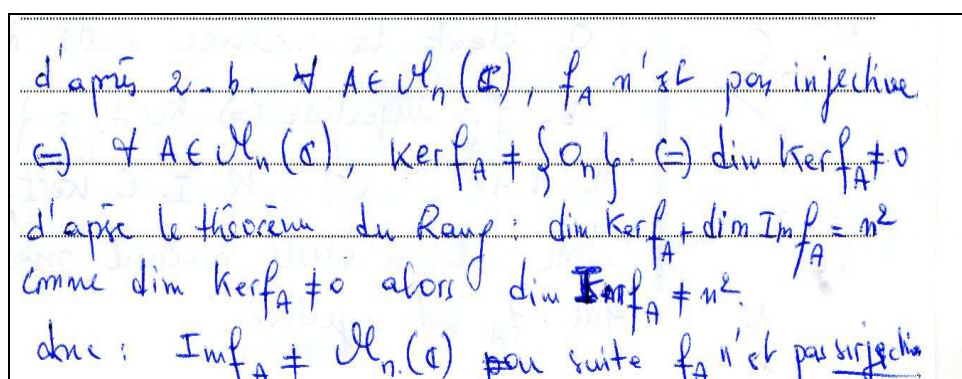 d'après 2-b. ∀ A ∈ M_n(ℂ), f_A n'est pas injective
⇔ ∀ A ∈ M_n(ℂ), Ker f_A ≠ {O_n}. ⇔ dim Ker f_A ≠ 0
d'apsè le théorème du Rang : dim Ker f_A + dim Im f_A = n²
comme dim Ker f_A ≠ 0 alors dim Im f_A ≠ n².
donc : Im f_A ≠ M_n(ℂ) par suite f_A n'est pas surjective